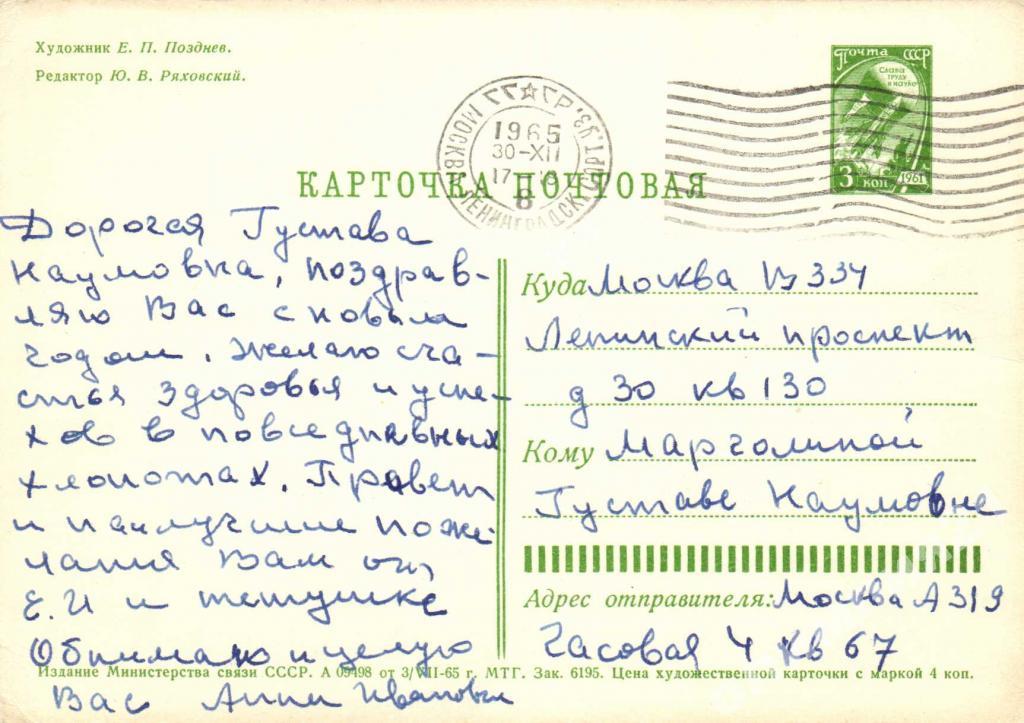 Художник Е. П. Позднев.
Редактор Ю. В. Ряховский.
Почта СССР
Слава труду и науке
3 коп 1961
МОСКВА
1965
30-XII
17
8
КАРТОЧКА ПОЧТОВАЯ
Дорогая Густава
Наумовна, поздрав-
ляю Вас с новым
годом. Желаю сча-
стья здоровья и успе-
хов в повседневных
хлопотах. Привет
и наилучшие поже-
лания Вам от
Е.И и тетушке
Обнимаю и целую
Вас Анна Ивановна
Куда Москва В 334
Ленинский проспект
д 30 кв 130
Кому Марголиной
Густаве Наумовне
Адрес отправителя: Москва А 319
Часовая 4 кв 67
Издание Министерства связи СССР. А 09498 от 3/VII-65 г. МТГ. Зак. 6195. Цена художественной карточки с маркой 4 коп.